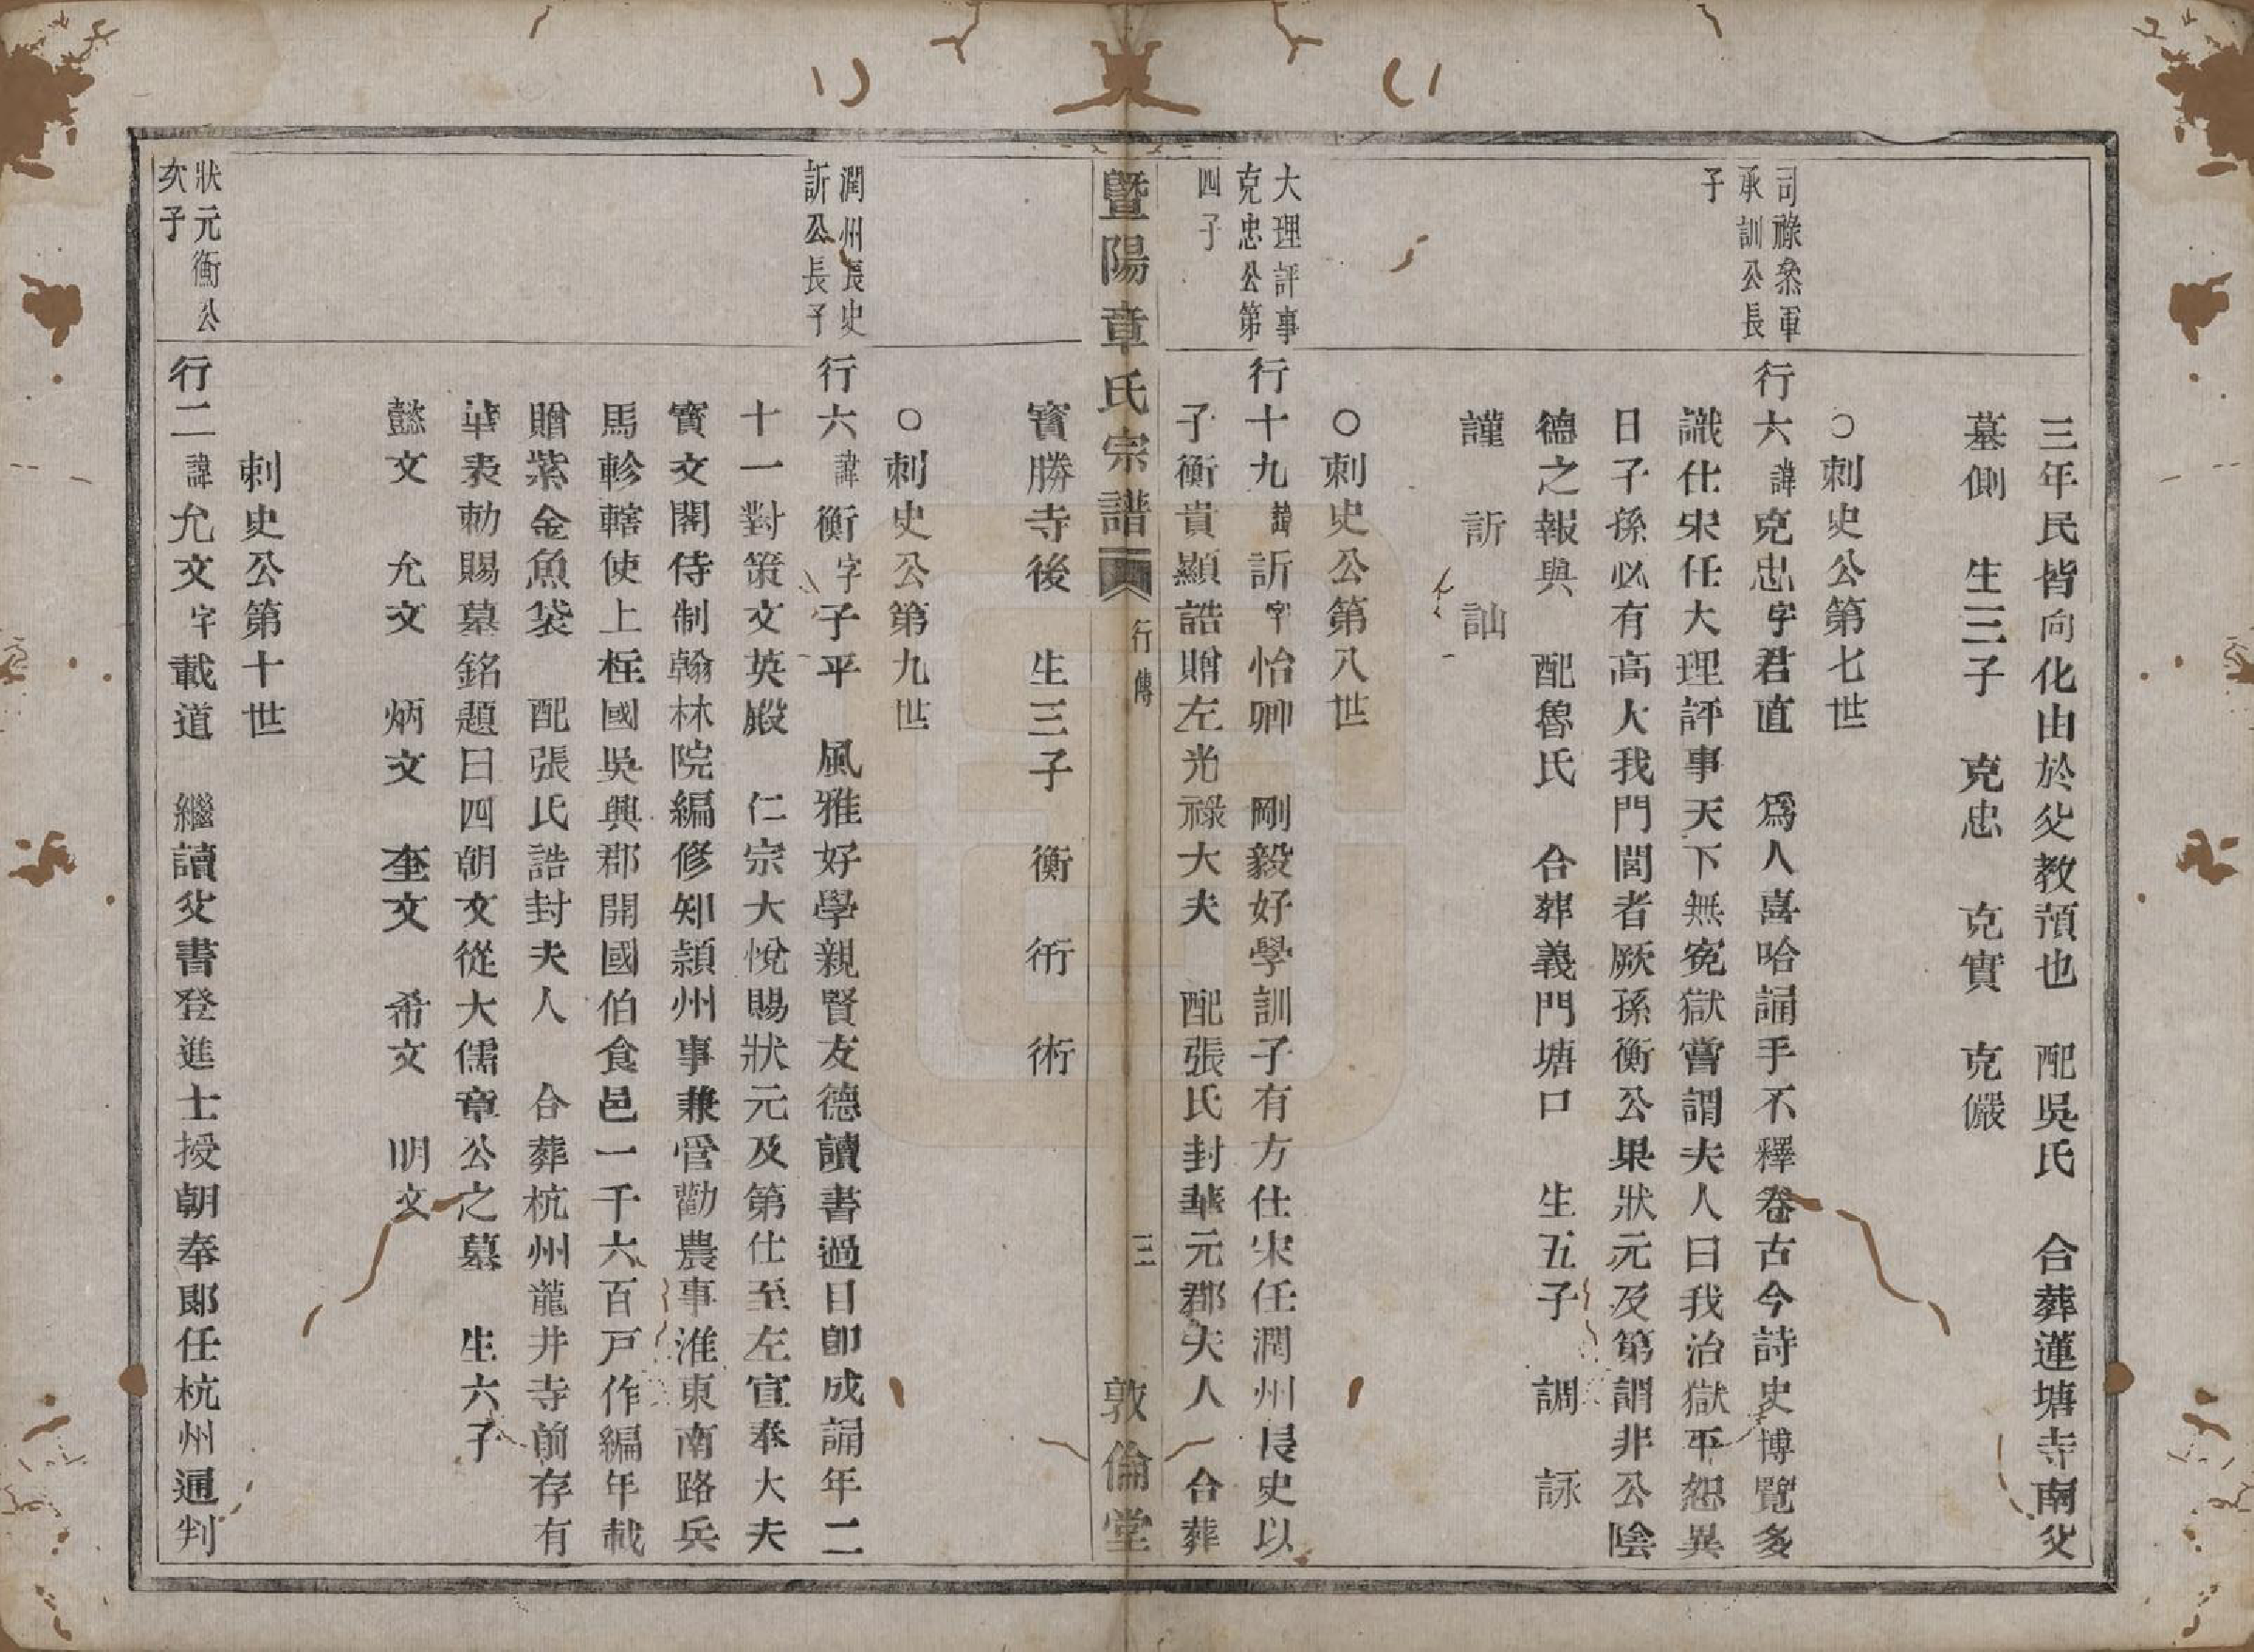 三年民皆向化由於父教預也　配吳氏　合葬蓮塘寺南父
墓側　生三子　克忠　克實　克儼
○刺史公第七世
司祿叅軍
承訓公長
子
行六諱克忠字君直　爲人喜哈誦手不釋卷古今詩史博覽多
識仕宋任大理評事天下無寃獄嘗謂夫人曰我治獄平恕異
日子孫必有高大我門閭者厥孫衡公果狀元及第謂非公陰
德之報與　配魯氏　合葬義門塘口　生五子　調　詠
謹　訢　訕
○刺史公第八世
大理評事
克忠公第
四子
行十九諱訢字怡卿　剛毅好學訓子有方仕宋任潤州長史以
子衡貴顯誥贈左光祿大夫　配張氏封華元郡夫人　合葬
寳勝寺後　生三子　衡　衎　術
暨陽章氏宗譜　行傳　三　敦倫堂
○刺史公第九世
潤州長史
訢公長子
行六諱衡字子平　風雅好學親賢友德讀書過目卽成誦年二
十一對策文英殿　仁宗大悅賜狀元及第仕至左宣奉大夫
寳文閣侍制翰林院編修知頴州事兼管勸農事淮東南路兵
馬軫轄使上柱國吳興郡開國伯食邑一千六百戸作編年載
贈紫金魚袋　配張氏誥封夫人　合葬杭州龍井寺前存有
華表勅賜墓銘題曰四朝文從大儒章公之墓　生六子
懿文　允文　炳文　奎文　希文　明文
刺史公第十世
狀元衡公
次子
行二諱允文字載道　繼讀父書登進士授朝奉郞任杭州通判